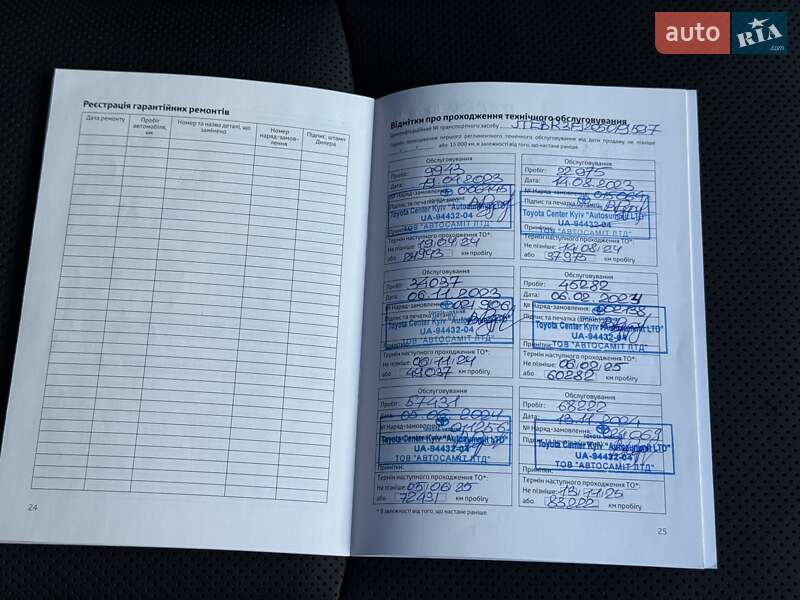 auto RIA.com
Реєстрація гарантійних ремонтів
Дата ремонту
Пробіг автомобіля, км
Номер та назва деталі, що замінено
Номер наряд-замовлення
Підпис, штамп Дилера
24
Відмітки про проходження технічного обслуговування
Ідентифікаційний № транспортного засобу
Термін проходження першого регламентного технічного обслуговування від дати продажу не пізніше
або 15 000 км, в залежності від того, що настане раніше
Обслуговування
Пробіг: 9943
Дата: 19.04.2023
№ Наряд-замовлення:
Підпис та печатка
Toyota Center Kyiv "Autosummit LTD"
UA-94432-04
ТОВ "АВТОСАМІТ ЛТД"
Термін наступного проходження ТО*:
Не пізніше: 19.04.24
або 24943 км пробігу
Обслуговування
Пробіг: 22975
Дата: 14.08.2023
№ Наряд-замовлення:
Підпис та печатка
Toyota Center Kyiv "Autosummit LTD"
UA-94432-04
ТОВ "АВТОСАМІТ ЛТД"
Термін наступного проходження ТО*:
Не пізніше: 14.08.24
або 37975 км пробігу
Обслуговування
Пробіг: 34037
Дата: 06.11.2023
№ Наряд-замовлення: 021906
Підпис та печатка
Toyota Center Kyiv "Autosummit LTD"
UA-94432-04
ТОВ "АВТОСАМІТ ЛТД"
Термін наступного проходження ТО*:
Не пізніше: 06.11.24
або 49037 км пробігу
Обслуговування
Пробіг: 45282
Дата: 06.02.2024
№ Наряд-замовлення: 002138
Підпис та печатка
Toyota Center Kyiv "Autosummit LTD"
UA-94432-04
ТОВ "АВТОСАМІТ ЛТД"
Термін наступного проходження ТО*:
Не пізніше: 06.02.25
або 60282 км пробігу
Обслуговування
Пробіг: 57431
Дата: 05.06.2024
№ Наряд-замовлення: 011256
Toyota Center Kyiv "Autosummit LTD"
UA-94432-04
ТОВ "АВТОСАМІТ ЛТД"
Примітки:
Термін наступного проходження ТО*:
Не пізніше: 05.06.25
або 72431 км пробігу
Обслуговування
Пробіг: 68222
Дата: 13.11.2024
№ Наряд-замовлення: 024069
Toyota Center Kyiv "Autosummit LTD"
UA-94432-04
ТОВ "АВТОСАМІТ ЛТД"
Примітки:
Термін наступного проходження ТО*:
Не пізніше: 13.11.25
або 83222 км пробігу
* В залежності від того, що настане раніше
25